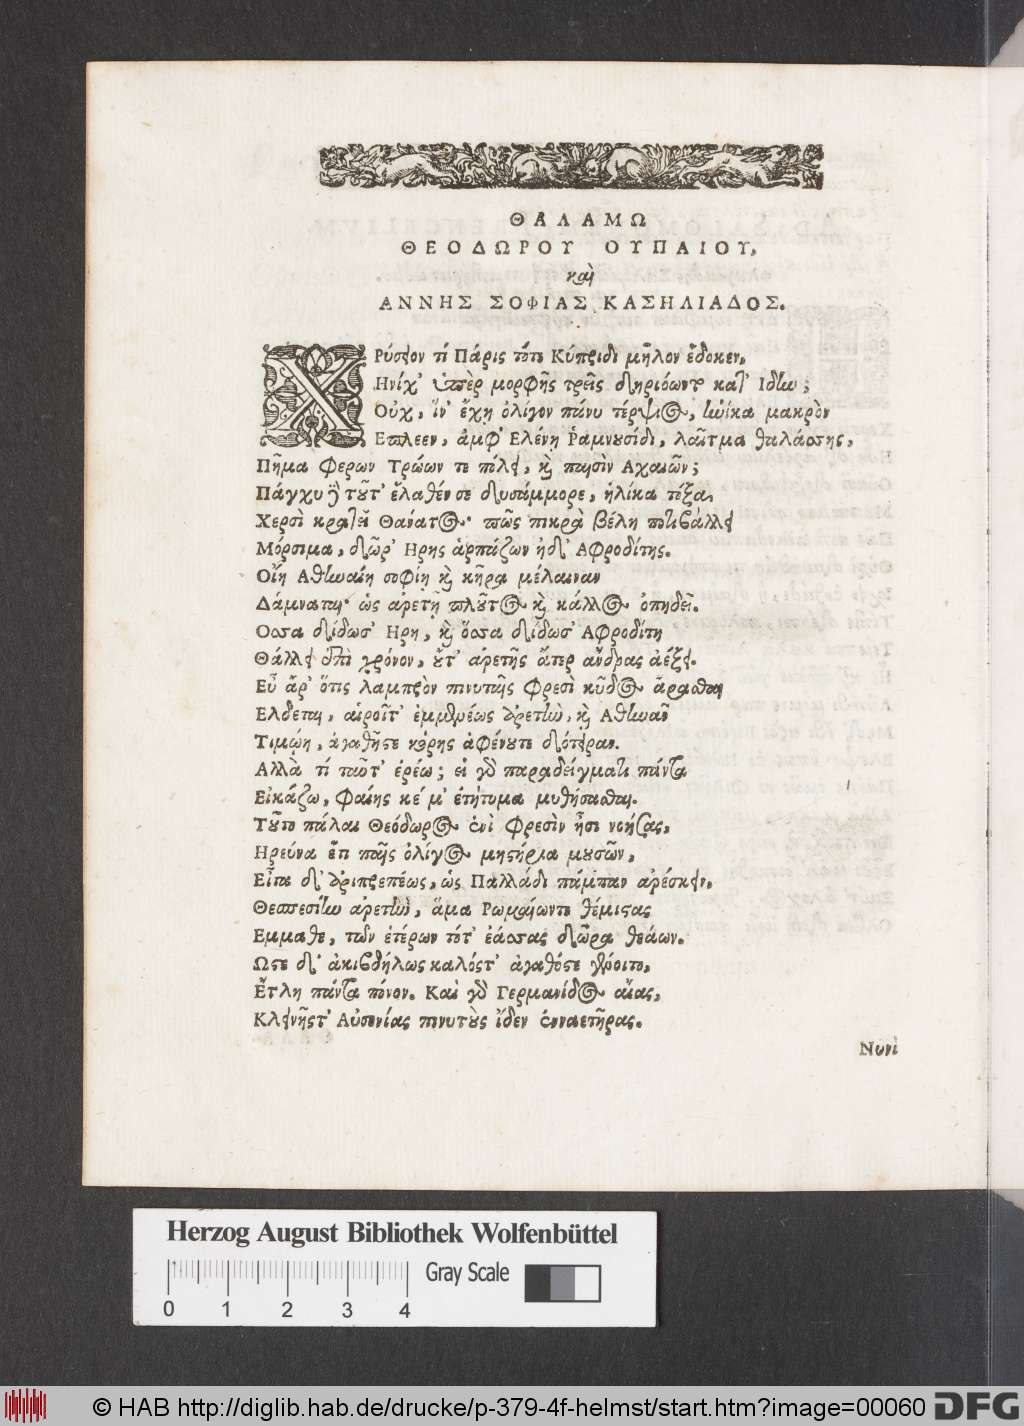 ΘΑΛΑΜΩ
ΘΕΟΔΩΡΟΥ ΟΥΠΑΙΟΥ,
καὶ
ΑΝΝΗΣ ΣΟΦΙΑΣ ΚΑΣΗΛΙΑΔΟΣ.
Χρύσεον τί Πάρις τότε Κύπριδι μῆλον ἔδοκεν,
Ηνίχ' ὑπὲρ μορφῆς τρεῖς δηριόωντ κατ' Ιδην;
Οὐχ, ἵν' ἔχῃ ὀλίγον πάνυ τέρψιος, ἡνίκα μακρὸν
Επλεεν, ἀμφ' Ελένῃ Ῥαμνουσίδι, λαῖτμα θαλάσσης,
Πῆμα Φερων Τρώων τε πόλει, καὶ πᾶσιν Αχαιῶν;
Πάγχυ γὰρ τοῦτ' ἔλαθέν σε δυσάμμορε, ἡλίκα τόξα,
Χερσὶ κρατεῖ Θάνατος· πῶς πικρὰ βέλη ποτιβάλλει
Μόρσιμα, δῶρ' Ηρης ἁρπάζων ἠδ' Αφροδίτης.
Οἴη Αθηναίη σοφίη καὶ κῆρα μέλαιναν
Δάμναται· ὡς ἀρετῇ πλοῦτος καὶ κάλλος ὀπηδεῖ.
Οσσα δίδωσ' Ηρη, καὶ ὅσσα δίδωσ' Αφροδίτη
Θάλλει ἐπὶ χρόνον, οὔτ' ἀρετῆς ἄτερ ἄνδρας ἀέξει.
Εὖ ἄρ' ὅτις λαμπρὸν πινυτῆς Φρεσὶ κῦδος ἄρασθαι
Ελδεται, αἱροῖτ' ἐμμρέως ἀρετὴν, καὶ Αθηνᾶν
Τιμῴη, ἀγαθῆστε κόρης ἀφένουτε διότειραν.
Αλλὰ τί ταῦτ' ἐρέω; εἰ γὰρ παραδείγματι πάντα
Εἰκάζω, Φαίης κέ μ' ἐτήτυμα μυθήσασθαι.
Τοῦτο πάλαι Θεόδωρος ἐνὶ Φρεσὶν ᾗσι νοήσας,
Ηρεύνα ἔτι παῖς ὀλίγος μυστήρια μουσῶν,
Εἶπε δ' ἀριπρεπέως, ὡς Παλλάδι πάμπαν ἀρέσκειν,
Θεσπεσίην ἀρετὴν, ἅμα Ρωμαίωντε θέμιστας
Εμμαθε, τῶν ἑτέρων τότ' ἐάσσας δῶρα θεάων.
Ωστε δ' ἀκιβδήλως καλόστ' ἀγαθόστε γένοιτο,
Ἔτλη πάντα πόνον. Καὶ γὰρ Γερμανίδος αἴας,
Κλεινῆστ' Αὐσονίας πινυτοὺς ἴδεν ἐνναετῆρας.
Νυνὶ
Herzog August Bibliothek Wolfenbüttel
Gray Scale
0 1 2 3 4
© HAB http://diglib.hab.de/drucke/p-379-4f-helmst/start.htm?image=00060 DFG